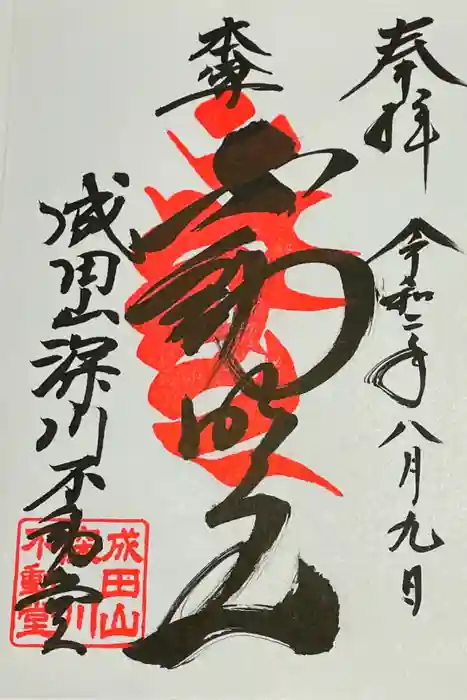 奉拝
令和二年八月九日
本尊
不動明王
成田山深川不動堂
成田山
深川
不動堂